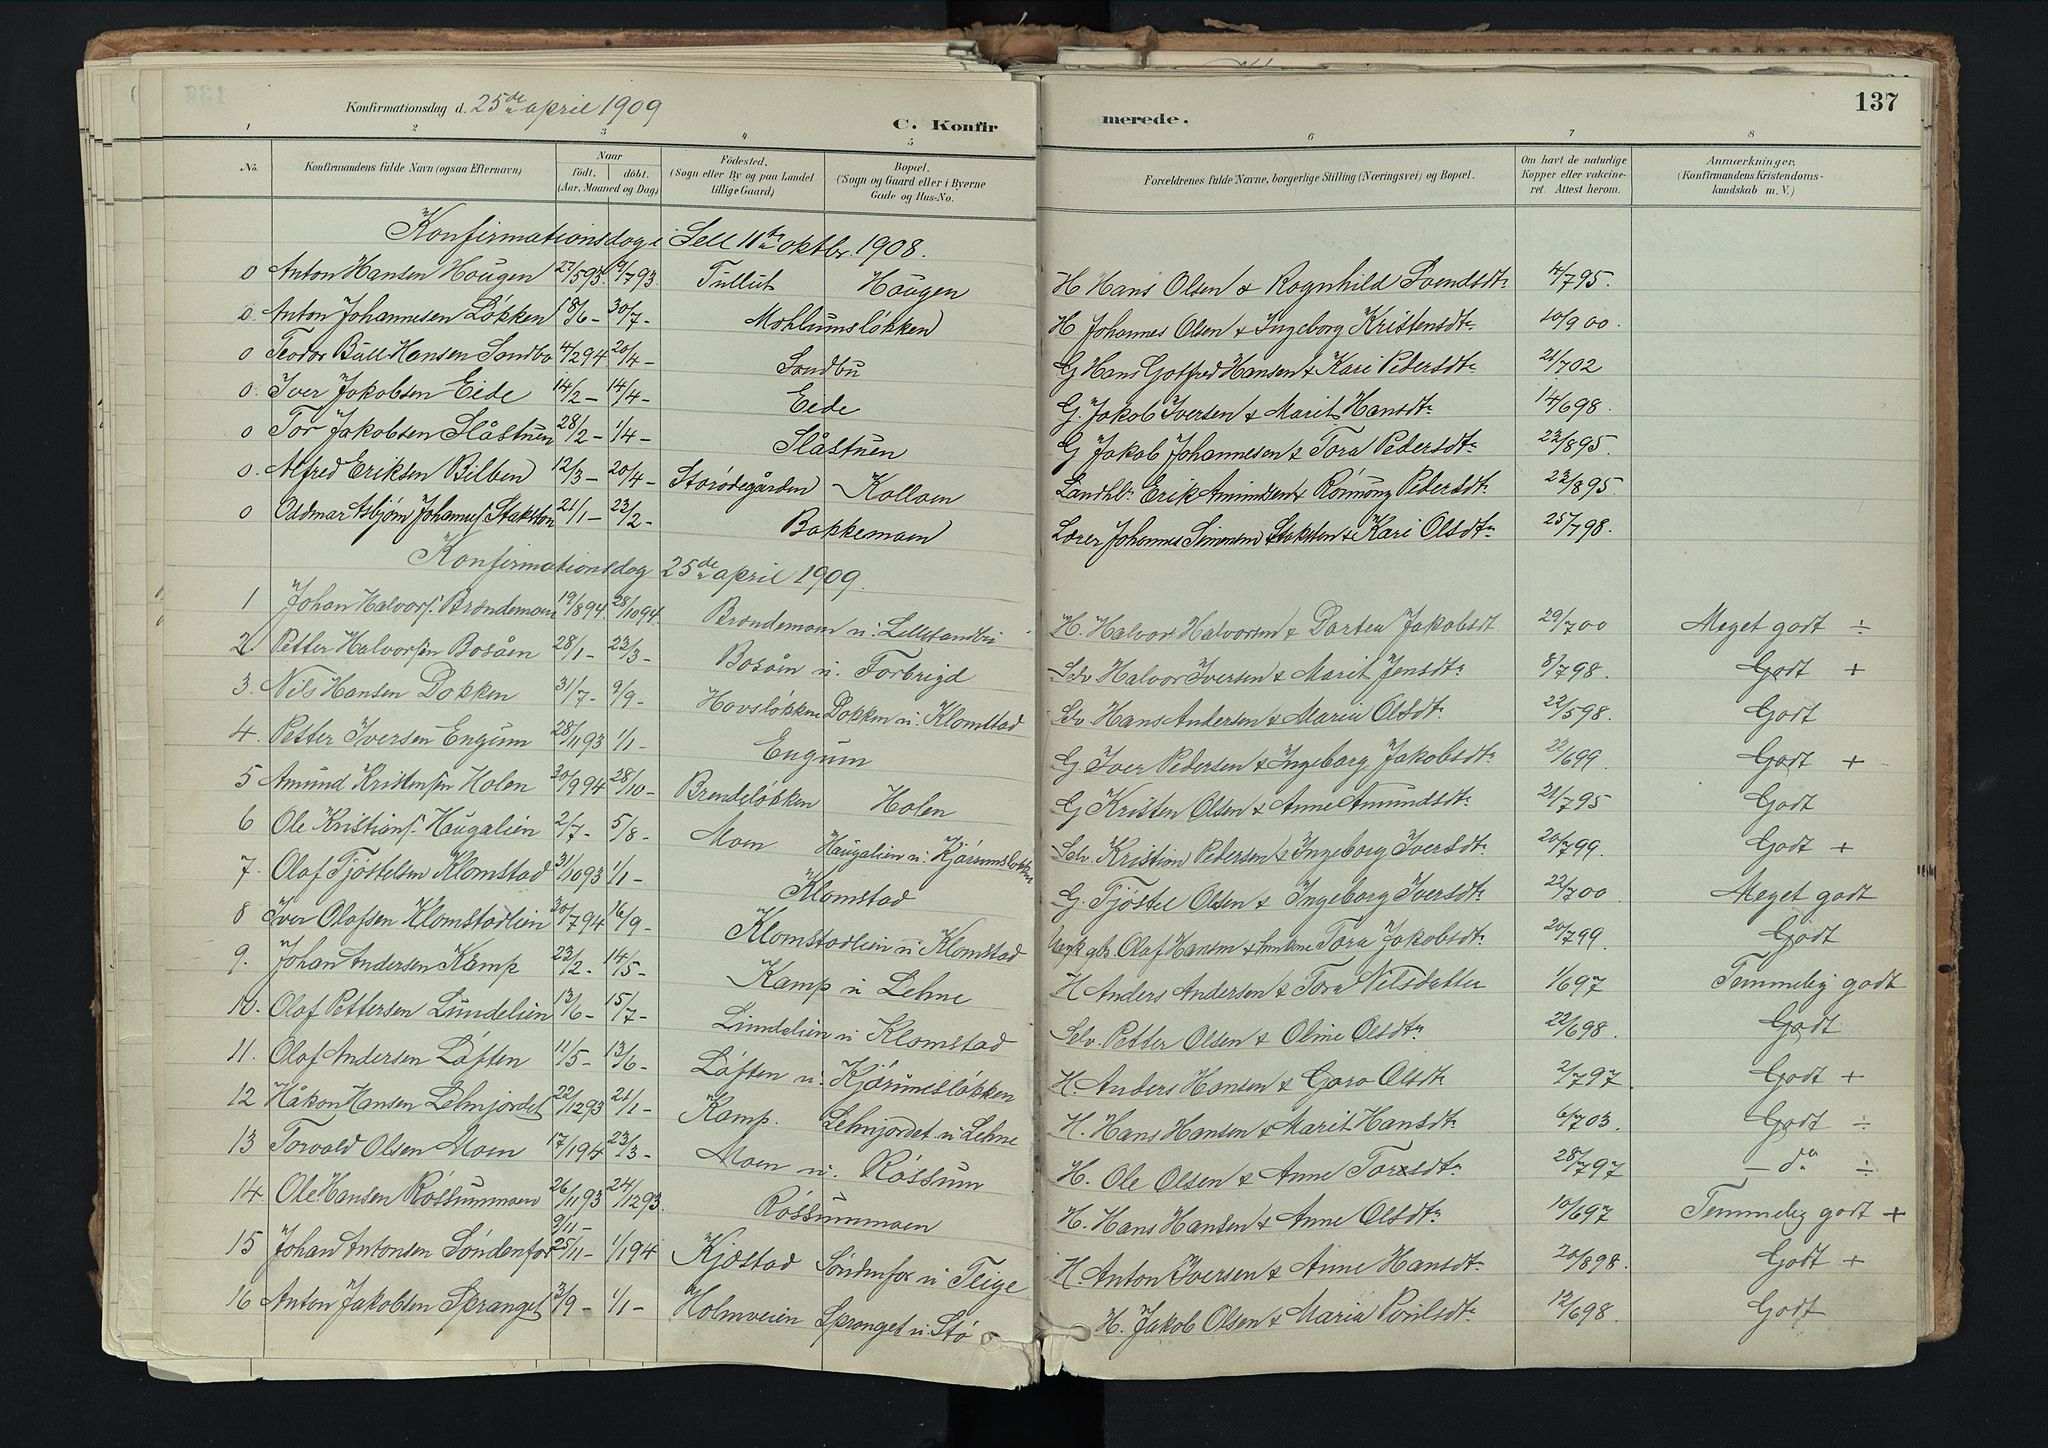 137
Konfirmationsdag d. 25de april 1909
C. Konfirmerede.
1 2 3 4 5 6 7 8
No. Konfirmandens fulde Navn (ogsaa Efternavn) Naar født. døbt. (Aar, Maaned og Dag) Fødested. (Sogn eller By og paa Landet tillige Gaard) Bopæl. (Sogn og Gaard eller i Byerne Gade og Hus-No. Forældrenes fulde Navne, borgerlige Stilling (Næringsvei) og Bopæl. Om havt de naturlige Kopper eller vakcineret. Attest herom. Anmærkninger, (Konfirmandens Kristendomskundskab m. V.)
Konfirmationsdag i Sell 11te oktbr 1908.
0 Anton Hansen Haugen 27/5 93. 9/7 93. Tullut Haugen H Hans Olsen & Ragnhild Svendsdtr 4/7 95.
0. Anton Johannesen Løkken 18/6 - 30/7 - Mohlumsløkken H Johannes Olsen & Ingeborg Kristensdtr 10/9 00.
0 Teodor Bull-Hansen Sandbu 4/2 94. 20/4 - Sandbu G Hans Gotfred Hansen & Kari Pedersdtr 21/7 02
0. Iver Jakobsen Eide 14/2 - 14/4 - Eide G. Jakob Iversen & Marit Hansdtr 14/6 98.
0 Tor Jakobsen Slåstuen 28/2 - 1/4 - Slåstuen G Jakob Johannesen & Tora Pedersdtr 22/8 95.
0. Alfred Eriksen Bilben 12/3 - 20/4 - Storødegården Kolloen Landhl. Erik Amundsen & Rønnoug Pedersdtr 22/8 95.
0 Oddmar Asbjørn Johannes. Stakston 21/1 - 22/2 - Bakkemoen Lærer Johannes Simensen Stakston & Kari Olsdtr 25/7 98.
Konfirmationsdag 25de april 1909.
1 Johan Halvors. Brændemoen 19/8 94. 28/10 94. Brændemoen u. Lillesandbu H. Halvor Halvorsen & Dortea Jakobsdt 29/7 00 Meget godt ÷
2 Petter Halvorsen Bosåen 28/1 - 23/3 - Bosåen u. Forbrigd Selv. Halvor Iversen & Marit Jensdtr 8/7 98. Godt +
3. Nils Hansen Dokken 31/7 - 9/9 - Hovsløkken Dokken u. Klomstad Selv Hans Andersen & Maria Olsdtr 22/5 98. Godt
4. Petter Iversen Engum 28/11 93 1/1 - Engum G. Iver Pedersen & Ingeborg Jakobsdtr 22/6 99. Godt +
5 Amund Kristensen Holen 20/9 94 28/10 - Brendeløkken Holen G Kristen Olsen & Anne Amundsdtr 21/7 95 Godt
6 Ole Kristians. Haugalien 2/7 - 5/8 - Moen Haugalien u. Kjørumsløkken Selv. Kristian Pedersen & Ingeborg Iversdtr 20/7 99. Godt +
7. Olaf Tjøstelsen Klomstad 31/10 93 1/1 - Klomstad G. Tjøstel Olsen & Ingeborg Iversdtr 22/7 00. Meget godt
8 Iver Olafsen Klomstadlien 30/7 94 16/9 - Klomstadlien u. Klomstad Olaf Hansen & Tora Jakobsdtr 20/7 99. Godt
9. Johan Andersen Kamp 23/2 - 14/5 - Kamp u Lehne H Anders Andersen & Tora Nilsdatter 1/6 97 Temmelig godt
10. Olaf Pettersen Lundelien 13/6 - 15/7 - Lundelien u Klomstad Selv. Petter Olsen & Oline Olsdtr 22/6 98. Godt
11. Olaf Andersen Løften 11/5 - 13/6 - Løften u. Kjørumsløkken H. Anders Hansen & Guro Olsdtr 2/7 97. Godt +
12 Håkon Hansen Lehnjordet 22/12 93 21/1 - Kamp. Lehnjordet u Lehne H. Hans Hansen & Marit Hansdtr 6/7 03. Godt ÷
13 Torvald Olsen Moen 17/1 94 23/3 - Moen u. Røssum H. Ole Olsen & Anne Torsdtr 28/7 97 - do ÷
14. Ole Hansen Røssummoen 26/11 93 24/12 93. Røssummoen H. Hans Hansen & Anne Olsdtr 10/6 97 Temmelig godt +
9/11 -
15 Johan Antonsen Søndenfor 25/11 - 1/1 94 Kjøstad Søndenfor u Teige H. Anton Iversen & Anne Hansdtr 20/8 98. Godt +
16 Anton Jakobsen Spranget 3/9 - 1/1 - Holmveien Spranget u. Stø H. Jakob Olsen & Maria Povilsdtr 12/6 98. Godt